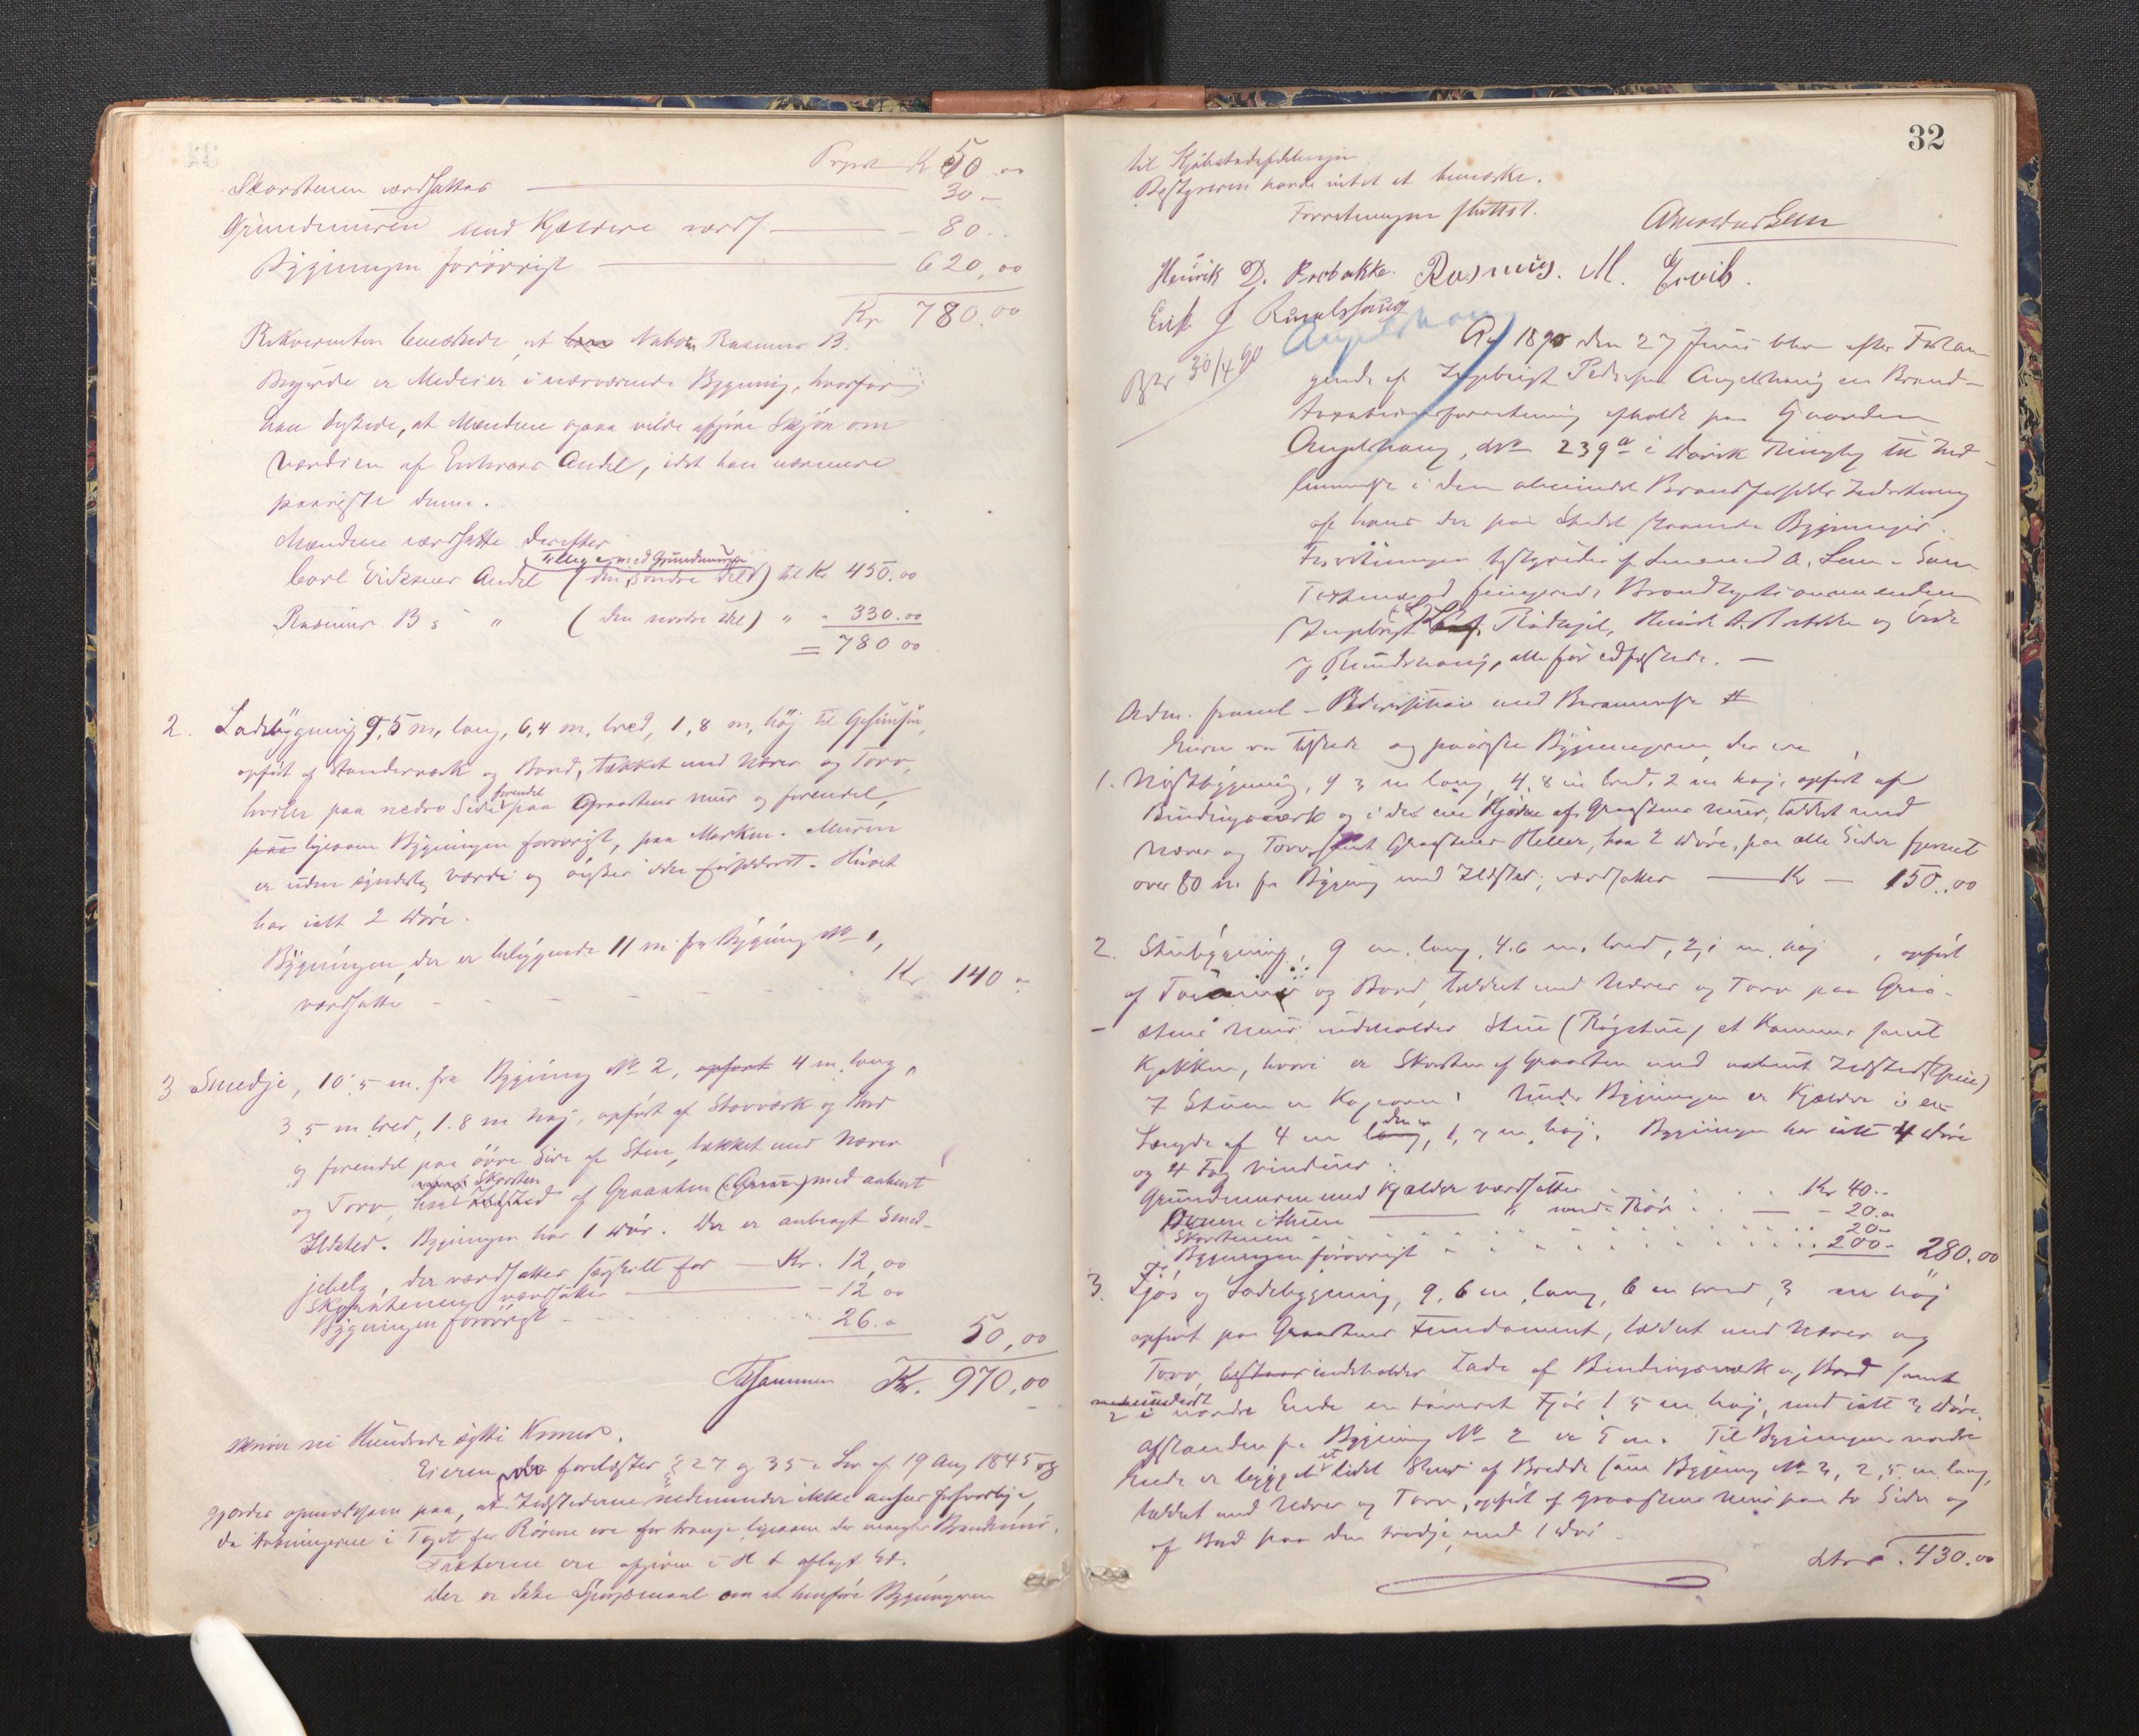 Kr 50 00
Skorstenen værdsattes 30 -
Grundmuren med Kjældere værds - 80 -
Bygningen forøvrigt 620,00
Kr 780.00
Rekvirenten bemærkede at Naboen Rasmus B.
er Medeier i nærværende Bygning, hvorfor
han at Mændene ogsaa vilde afgive Skjøn om
Værdien af Enhvers Andel, idet han nærmere
paaviste denne.
Mændene værdsatte derefter
Tillige med Grundmuren
Carl Eriksens Andel (den søndre Del) til Kr 450.00
Rasmus B s " (den nordre Del) " - 330.00
= 780 00
2. Ladebygning 9,5 m, lang, 6,4 m, bred, 1,8 m, høj til Gesimsen,
opført af Stenderværk og Bord, tækket med Næver og Torv,
forendel
hviler paa nedre Side paa Graastens Mur og forendel,
paa ligesom Bygningen forøvrigt, paa Marken. Muren
er uden synderlig Værdi og ønskes ikke forsikret. Huset
har ialt 2 Døre.
Bygningen, der er beliggende 11 m. fra Bygning No 1,
værdsattes Kr 140 -
3 Smedje, 10.5 m. fra Bygning No 2, opført 4 m. lang,
3 5 m bred, 1.8 m høj, opført af Stavværk og Bord
og forendel paa øvre Side af Sten, tækket med Næver
Skorsten
og Torv, har Ildsted af Graasten (Grue) med aabent
Ildsted. Bygningen har 1 Dør. Der er anbragt Smed-
jebelg, der værdsattes særskilt for - Kr. 12,00
Skorstenen værdsattes - 12 00
Bygningen forøvrigt 26.- 50,00
Tilsammen Kr. 970,00
skriver ni Hundrede sytti Kroner.
Eieren forelæstes § 27 og 35 i Lov af 19 Aug 1845 og
gjordes opmærksom paa, at Ildstederne nedenunder ikke ansees forsvarlige,
da Aabningerne i Taget for Rørene ere for trange ligesom der mangler Brandmur.
Taxterne ere afgivne i H t aflagt Ed.
Der er ikke Spørgsmaal om at henføre Bygningerne
32
til Kjøbstadafdelingen
Bestyreren havde intet at bemærke.
Forretningen sluttet.
Amandus Lem
Henrik D. Rosbakke. Rasmus. M. Ervik.
Erik J Rundshaug
Angelshaug
30/4 90
Aar 1890 den 27 Juni blev efter Forlan-
gende af Ingebrigt Pedersen Angelshaug en Brand-
taxationsforretning afholdt paa Gaarden
Angelshaug, No 239a i Davik Thinglag til Ind-
lemmelse i den almindel Brandforsikrs Indretning
af hans der paa Stedet staaende Bygninger.
Forretningen bestyredes af Lensmand A. Lem. Som
Taxtmænd fungerede Brandtaxtationsmændene
Ingebrigt Rødseje, Henrik D. Rosbakke og Erik
J. Rundshaug, alle før edfæstede. —
Adm. freml - Rekvisition med Berammelse #
Eieren var tilstede og paaviste Bygningerne, der ere
1. Nøstbygning, 9 3 m lang, 4,8 m bred, 2 m høj, opført af
Bindingsværk og i det ene Hjørne af Graastens Muur, tækket med
Næver og Torv samt Graastens Heller, har 2 Døre, paa alle Sider fjernet
over 80 m. fra Bygning med Ildsted; værdsattes Kr 150.00
2. Stuebygning, 9 m. lang, 4.6 m. bred, 2,1 m. høj, opført
af Tømmer og Bord, tækket med Næver og Torv paa Graa-
stens Muur indeholder Stue (Røgstue) et Kammer samt
Kjøkken, hvori er Skorsten af Graasten med aabent Ildsted (Grue)
I Stuen er Kogeovn. Under Bygningen er Kjælder i en
den er
Længde af 4 m lang, 1,7 m høj. Bygningen har ialt 4 Døre
og 4 Fag Vinduer.
Grundmuren med Kjælder værdsattes Kr 40 -
Ovnen i Stuen " med Rør - 20.-
Skorstenen 20 -
Bygningen forøvrigt 200 - 280.00
3. Fjøs og Ladebygning, 9,6 m, lang, 6 m bred, 3 m høj
opført paa Graastens Fundament, tækket med Næver og
Torv, bestaar indeholder Lade af Bindingsværk og Bord samt
i nordre Ende en tømret Fjøs 1 5 m høj, med ialt 3 Døre.
Afstanden fra Bygning No 2 er 5 m. Til Bygningens nordre
Ende er bygget et lidet Skur af Bredde som Bygning No 3, 2,5 m. lang,
tækket med Næver og Torv, opført af Graastens Muur paa to Sider og
af Bord paa den tredje, med 1 Dør
430.00